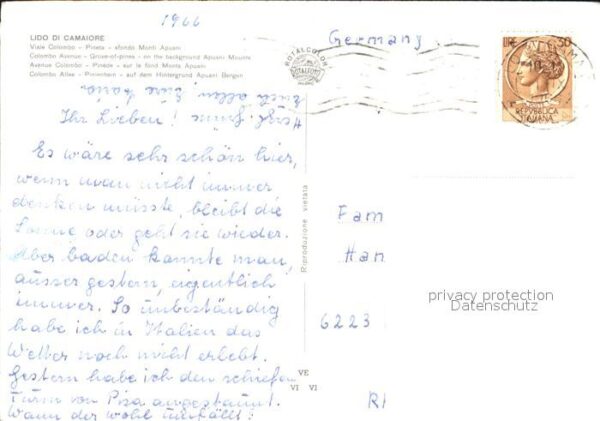 1966
LIDO DI CAMAIORE
Viale Colombo - Pineta - sfondo Monti Apuani
Colombo Avenue - Grove-of-pines - on the background Apuani Mounts
Avenue Colombo - Pinède - sur le fond Monts Apuani
Colombo Allee - Pinienhein - auf dem Hintergrund Apuani Bergen
Herzl. Grüße
Euch allen, Eure
Ihr Lieben!
Es wäre sehr schön hier,
wenn man nicht immer
denken müsste, bleibt die
Sonne oder geht sie wieder.
Aber baden konnte man,
ausser gestern, eigentlich
immer. So unbeständig
habe ich in Italien das
Wetter noch nicht erlebt.
Gestern habe ich den schiefen
Turm von Pisa angestaunt.
Wann der wohl umfällt?
ROTALCOLOR
ROTALFOTO
Riproduzione vietata
VE
VI VI
Germany
LIRE 50
REPVBBLICA
ITALIANA
Fam
Han
6223
privacy protection
Datenschutz